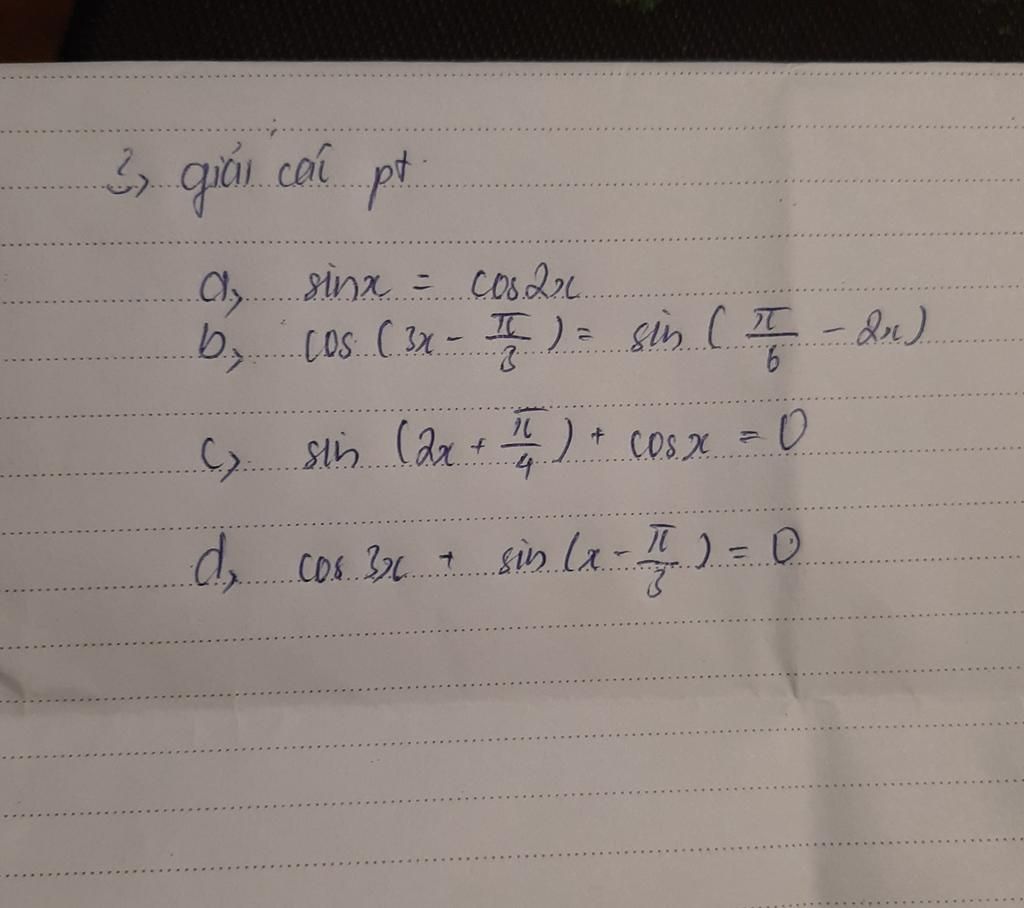 3, giải các pt
a, sinx = cos2x
b, cos (3x - π/3) = sin (π/6 - 2x)
c, sin (2x + π/4) + cosx = 0
d, cos 3x + sin (x - π/3) = 0